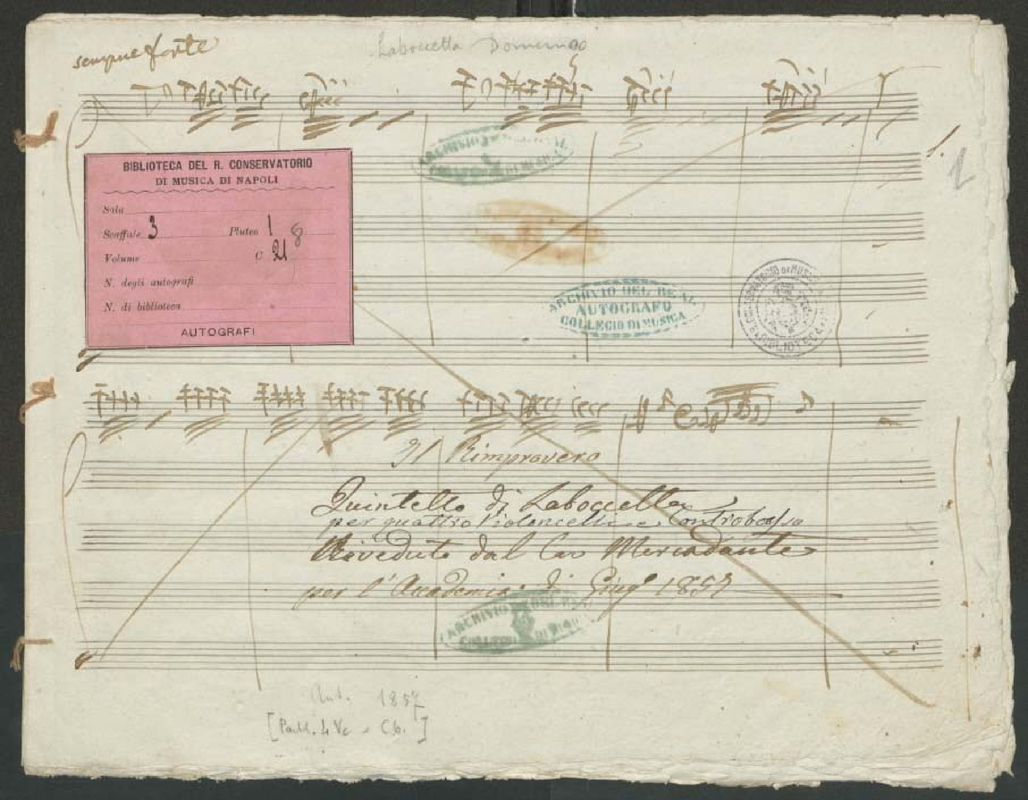 sempre forte
Laboccetta Domenico
1
BIBLIOTECA DEL R. CONSERVATORIO
DI MUSICA DI NAPOLI
Sala
Scaffale 3 Pluteo 1 8
Volume C 21
N. degli autografi
N. di biblioteca
AUTOGRAFI
ARCHIVIO DEL REAL
COLLEGIO DI MUSICA
ARCHIVIO DEL REAL
AUTOGRAFO
COLLEGIO DI MUSICA
Il Rimprovero
Quintetto di Laboccetta
per quattro Violoncelli e Controbasso
Riveduto dal Cav Mercadante
per l'Accademia di Giug° 1857
ARCHIVIO DEL REAL
COLLEGIO DI MUSICA
Aut. 1857
[Part. 4 Vc e Cb.]